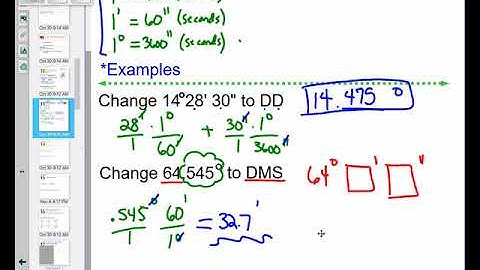 1' = 60" (seconds)
1° = 3600" (seconds)
*Examples
Change 14°28' 30" to DD
14.475 °
28'/1 · 1°/60' + 30"/1 · 1°/3600"
Change 64.545° to DMS
64° □ ' □ "
.545°/1 60'/1° = 32.7'